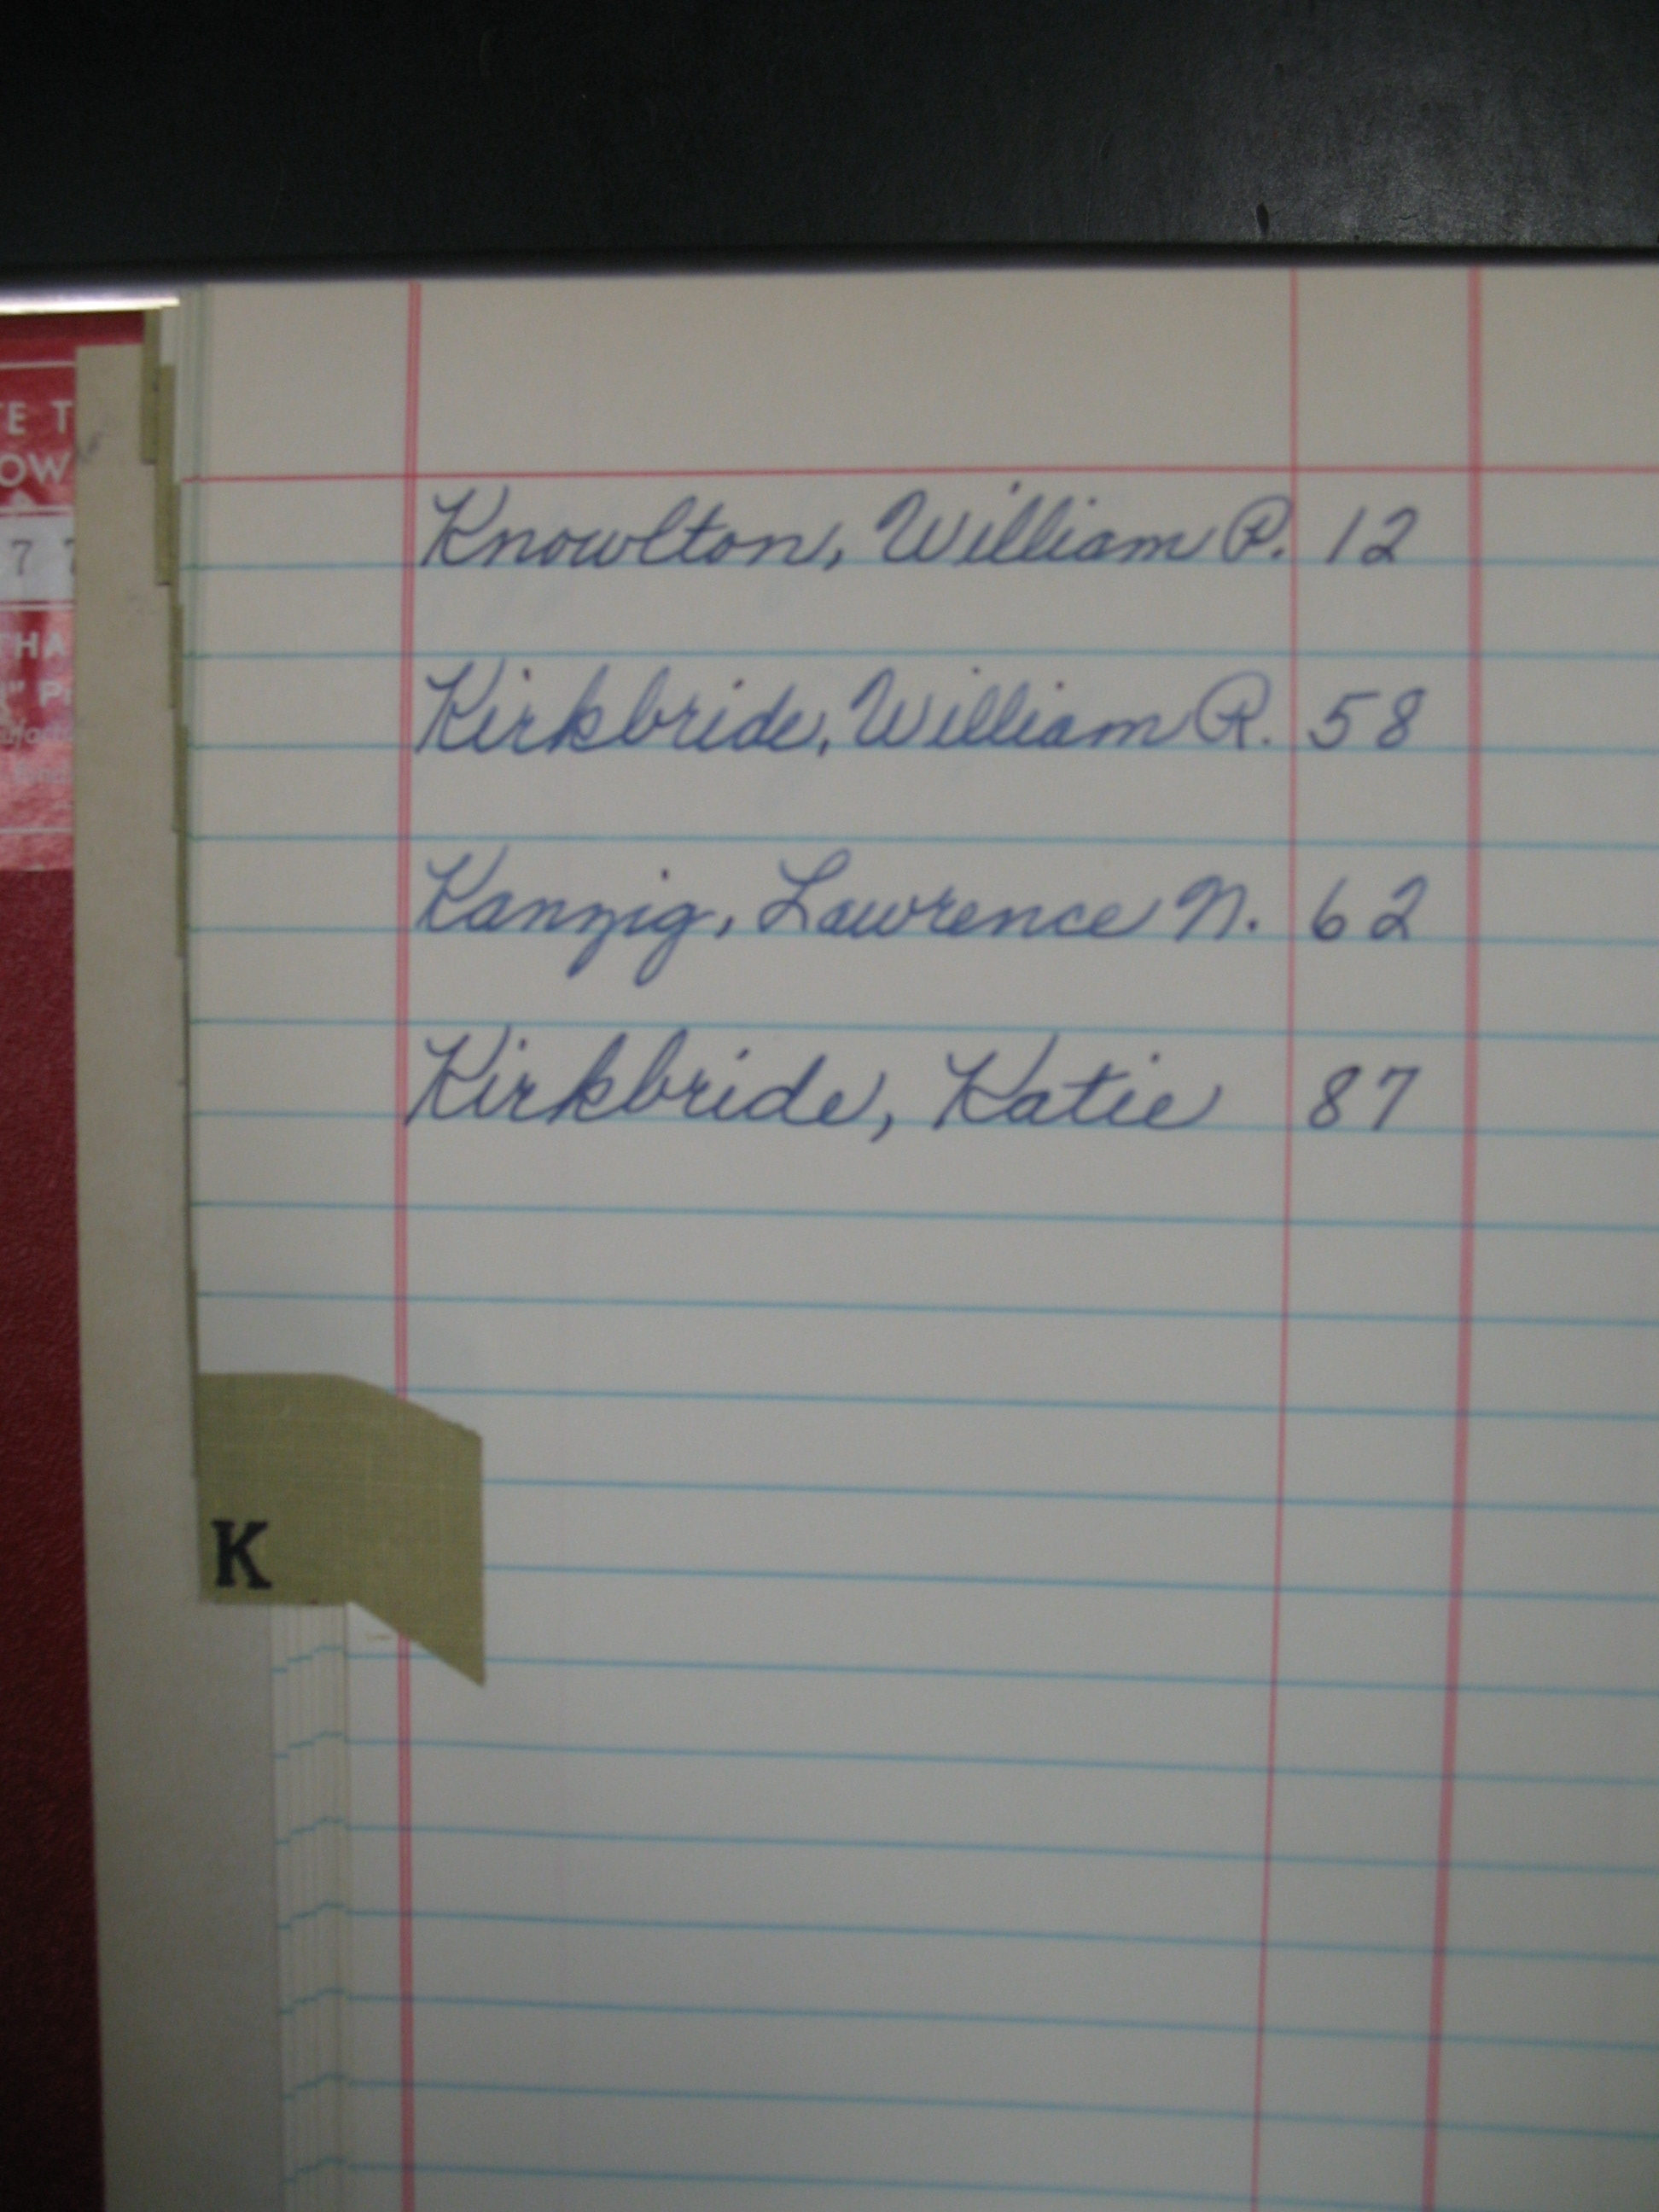 Knowlton, William P. 12
Kirkbride, William R. 58
Kanzig, Lawrence N. 62
Kirkbride, Katie 87
K
7